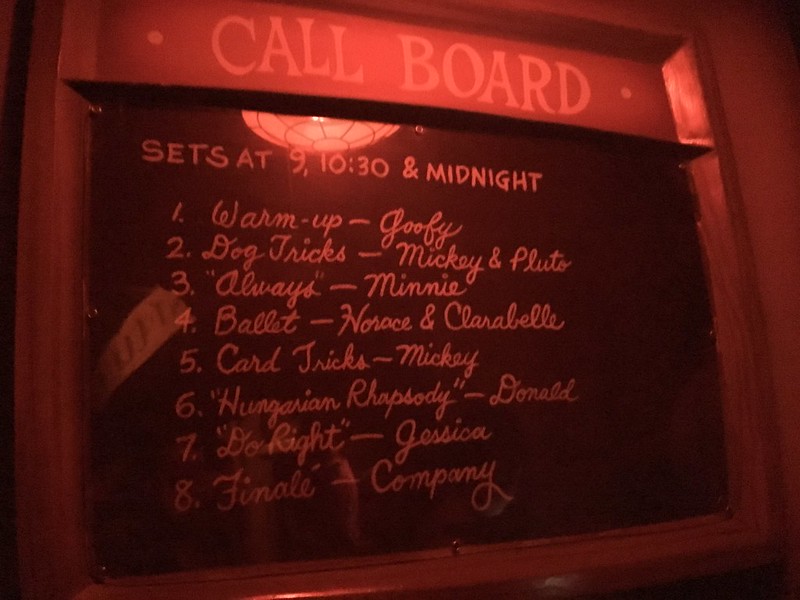 • CALL BOARD •
SETS AT 9, 10:30 & MIDNIGHT
1. Warm-up — Goofy
2. Dog Tricks — Mickey & Pluto
3. "Always" — Minnie
4. Ballet — Horace & Clarabelle
5. Card Tricks — Mickey
6. "Hungarian Rhapsody" — Donald
7. "Do Right" — Jessica
8. "Finale" — Company